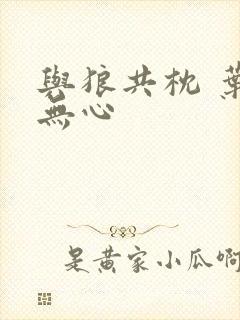 與狼共枕 葉
無心
是黃家小瓜啊